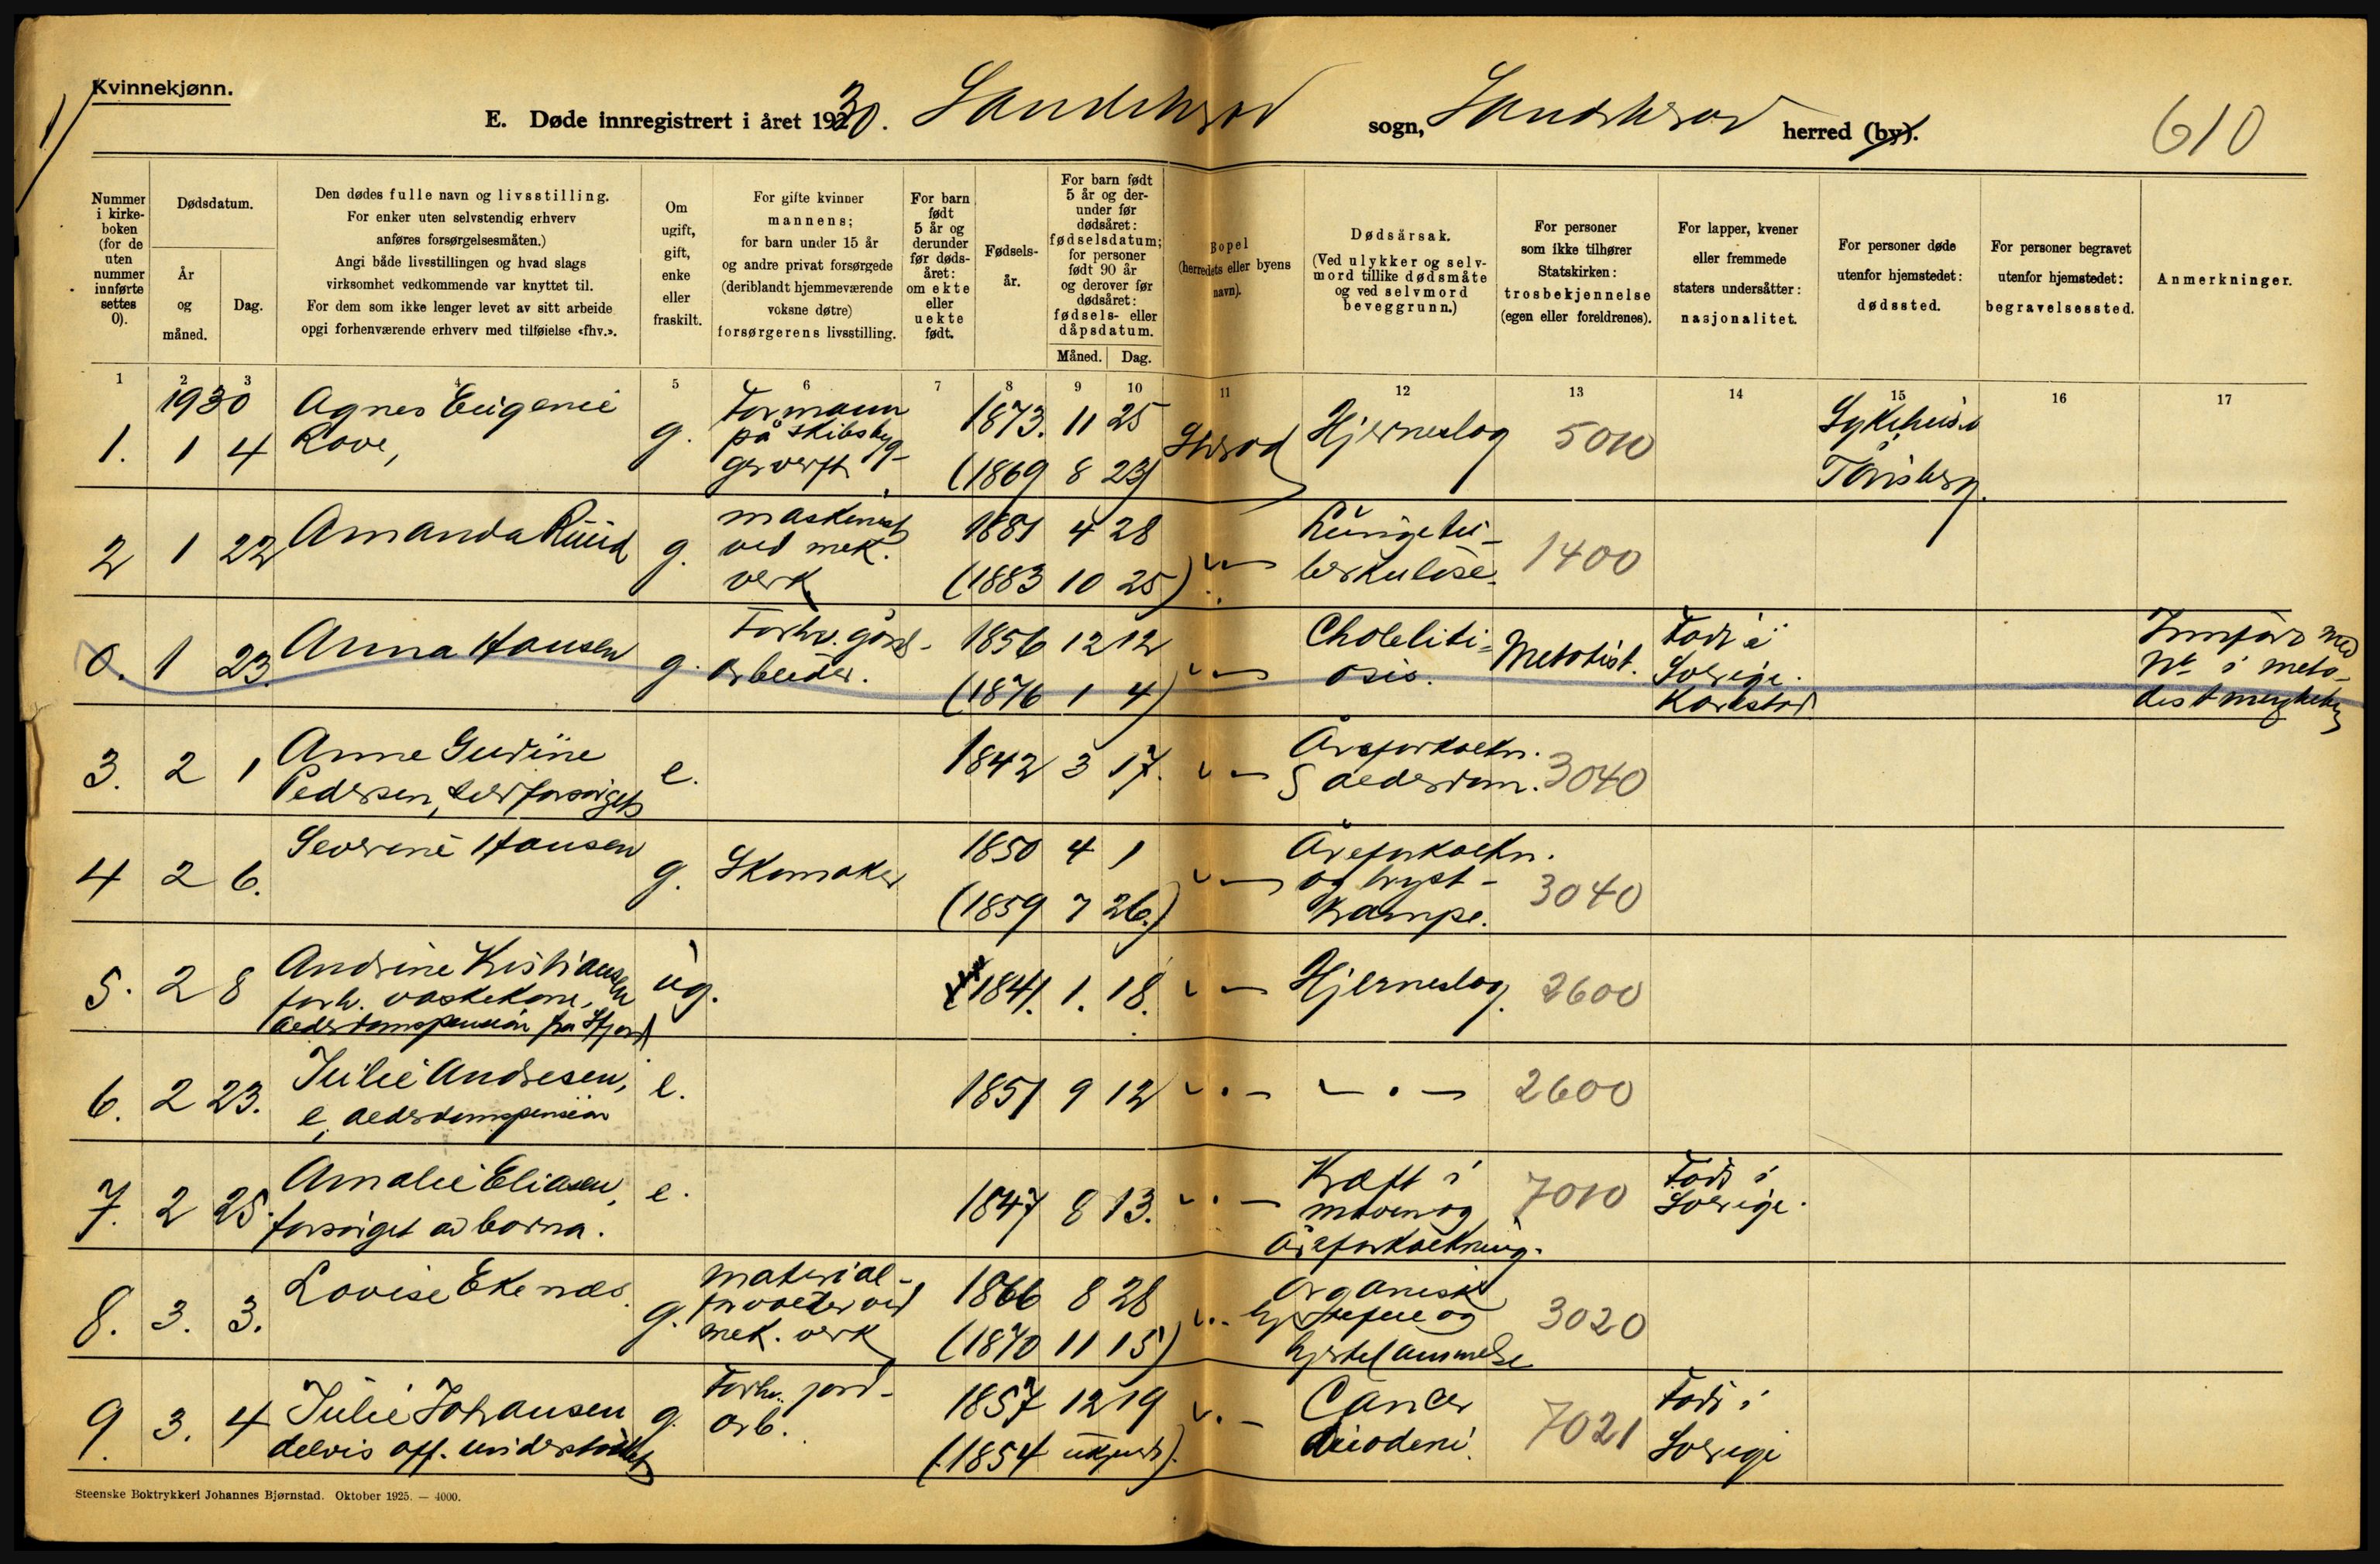 Kvinnekjønn.
E. Døde innregistrert i året 1930. Sandeherad sogn, Sandeherad herred (by).
610
Nummer i kirkeboken (for de uten nummer innførte settes 0).
Dødsdatum.
År og måned.
Dag.
Den dødes fulle navn og livsstilling.
For enker uten selvstendig erhverv
anføres forsørgelsesmåten.)
Angi både livsstillingen og hvad slags
virksomhet vedkommende var knyttet til.
For dem som ikke lenger levet av sitt arbeide
opgi forhenværende erhverv med tilføielse «fhv.».
Om ugift, gift, enke eller fraskilt.
For gifte kvinner
mannens;
for barn under 15 år
og andre privat forsørgede
(deriblandt hjemmeværende
voksne døtre)
forsørgerens livsstilling.
For barn født 5 år og derunder før dødsåret: om ekte eller uekte født.
Fødselsår.
For barn født 5 år og derunder før dødsåret: fødselsdatum; for personer født 90 år og derover før dødsåret: fødsels- eller dåpsdatum.
Måned.
Dag.
Bopel
(herredets eller byens
navn).
Dødsårsak.
(Ved ulykker og selv-
mord tillike dødsmåte
og ved selvmord
beveggrunn.)
For personer
som ikke tilhører
Statskirken:
trosbekjennelse
(egen eller foreldrenes).
For lapper, kvener
eller fremmede
staters undersåtter:
nasjonalitet.
For personer døde
utenfor hjemstedet:
dødssted.
For personer begravet
utenfor hjemstedet:
begravelsessted.
Anmerkninger.
1 2 3 4 5 6 7 8 9 10 11 12 13 14 15 16 17
1930 Agnes Eugenie Formann 1873. 11 25 Sykehuset
1. 1 4 Rove, g. på skibsbyg- Hjerneslag 5010
gerverft (1869 8 23) Tønsberg.
Amanda Ruud maskinist 1881 4 28 Lungetu-
2 1 22 g. ved mek. berkulose. 1400
verk (1883 10 25)
Anna Hansen Forhv. gårds- 1856 12 12 Choleliti- Født i Innført med
0. 1 23. g. arbeider. osis. Metodist. Sverige. Nr i meto-
(1876 1 4) Karlstad distmenigheten
Anne Gurine Åreforkalkn.
3. 2 1 Pedersen, selvforsørget e. 1842 3 17. alderdom. 3040
Severine Hansen 1850 4 1 Åreforkalkn.
4 2 6. g. Skomaker og bryst-
(1859 7 26.) krampe. 3040
Andrine Kristiansen
5. 2 8 forh. vaskekone, ug. 1841. 1. 18. Hjerneslag. 2600
alderdomspension fra Sfjord
Julie Andresen,
6. 2 23. e, alderdomspension e. 1851 9 12 2600
Amalie Eliasen, Kræft i Født i
7. 2 25. forsørget av barna. e. 1847 8 13. maven og 7010 Sverige.
Åreforkalkning.
Lovise Ekenæs material- 1866 8 28 Organisk
8. 3. 3. g. forvalter ved hjertefeil og 3020
mek. verk (1870 11 15) hjertelammelse
Julie Johansen Forhv. jord- 1857 12 19 Cancer Født i
9. 3. 4 delvis off. understøttet g. arb. (1854 ukjent). duodeni. 7021 Sverige
Steenske Boktrykkeri Johannes Bjørnstad. Oktober 1925. — 4000.